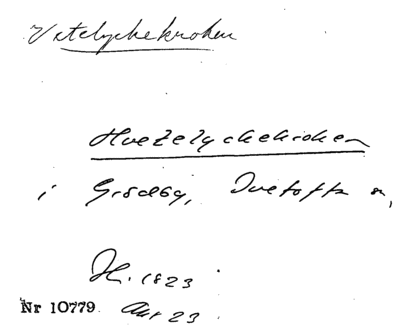 Vetelyckekroken
Hvetelyckekroken
i Gisleby, Tvetofta sn,
H. 1823
Nr 10779 Akt 23